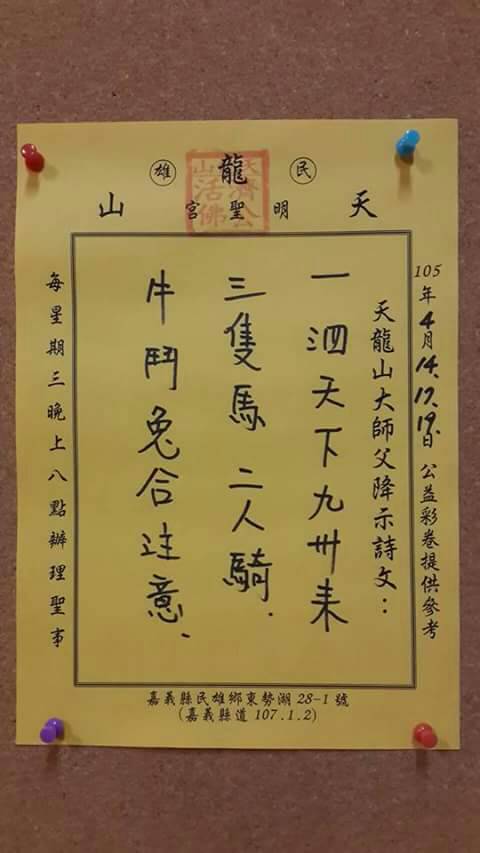 民龍雄
天明聖宮山
105年4月14、17、19日公益彩卷提供參考
天龍山大師父降示詩文：
一泗天下九卅来
三隻馬二人騎.
牛鬥兔合注意、
每星期三晚上八點辦理聖事
嘉義縣民雄鄉東勢湖28-1號
(嘉義縣道107.1.2)